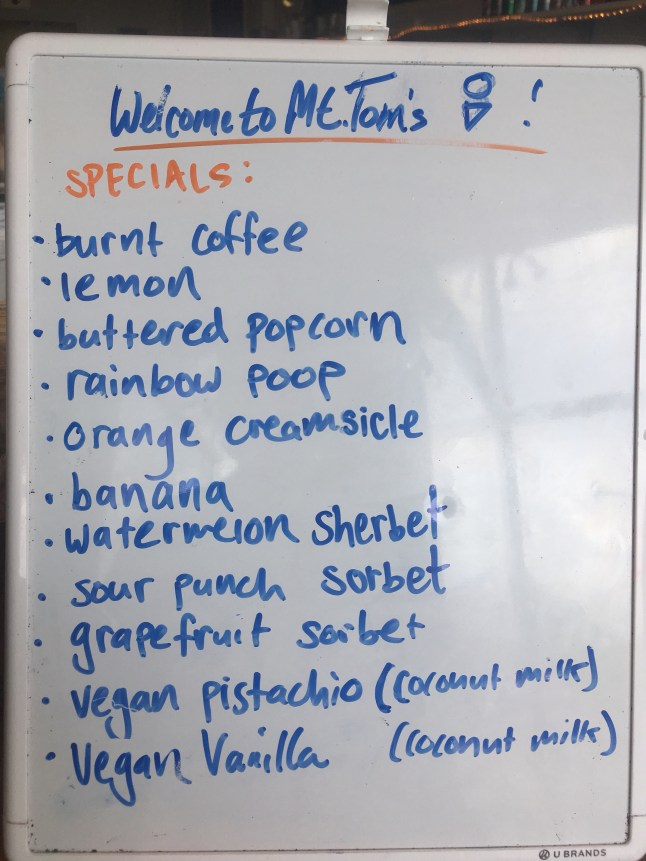 Welcome to Mt. Tom's !
SPECIALS:
• burnt coffee
• lemon
• buttered popcorn
• rainbow poop
• orange creamsicle
• banana
• watermelon sherbet
• sour punch sorbet
• grapefruit sorbet
• vegan pistachio (coconut milk)
• Vegan Vanilla (coconut milk)
U BRANDS